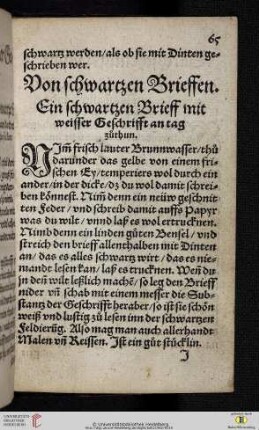 65
schwartz werden/als ob sie mit Dinten ge-
schrieben wer.
Von schwartzen Brieffen.
Ein schwartzen Brieff mit
weisser Geschrifft an tag
zůthun.
NIm̃ frisch lauter Brunnwasser/thů
darunder das gelbe von einem fri-
schen Ey/temperiers wol durch ein
ander/in der dicke/dz du wol damit schrei-
ben könnest. Nim̃ denn ein neüw geschnit-
ten Feder/vnd schreib damit auffs Papyr
was du wilt/vnnd laß es wol ertrucknen.
Nimb denn ein linden gůten Bensel/vnd
streich den brieff allenthalben mit Dinten
an/das es alles schwartz wirt/das es nie-
mandt lesen kan/laß es trucknen. Weñ du
jn deñ wilt leßlich machẽ/so leg den Brieff
nider vñ schab mit einem messer die Sub-
stantz der Geschrifft heraber/so ist sie schön
weiß vnd lustig zů lesen inn der schwartzen
Feldierüg. Also mag man auch allerhandt
Malen vñ Reissen. Ist ein gůt stücklin.
J
© Universitätsbibliothek Heidelberg